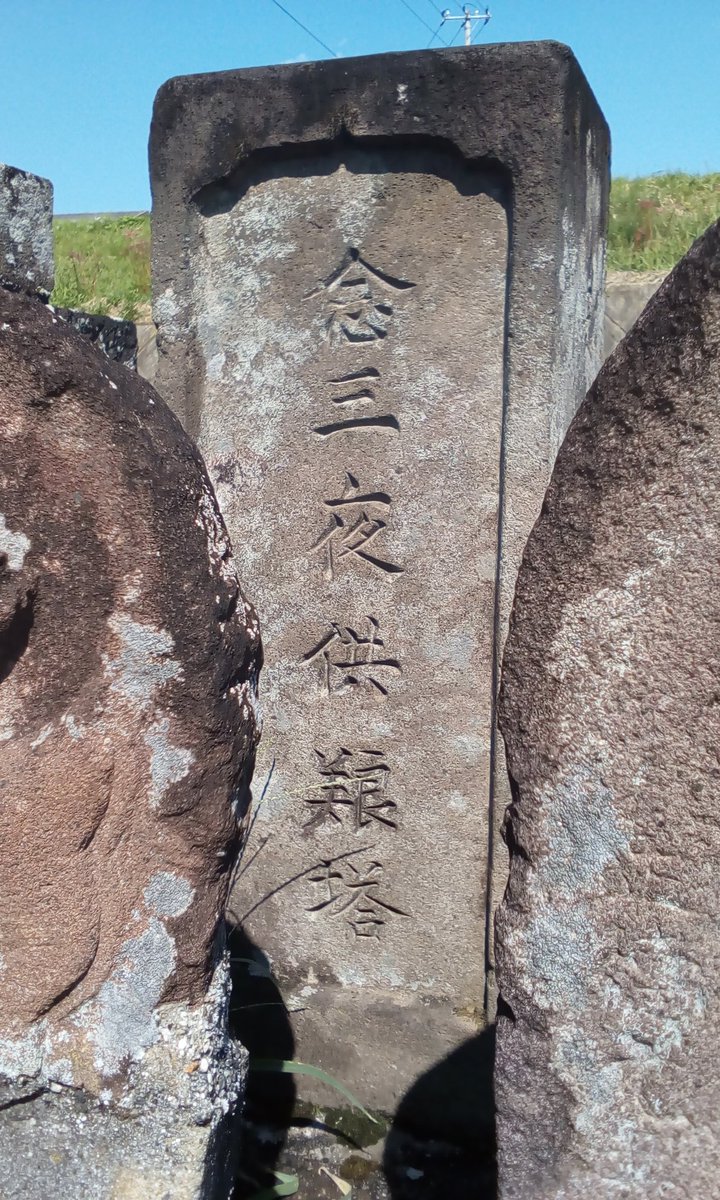 念三夜供養塔